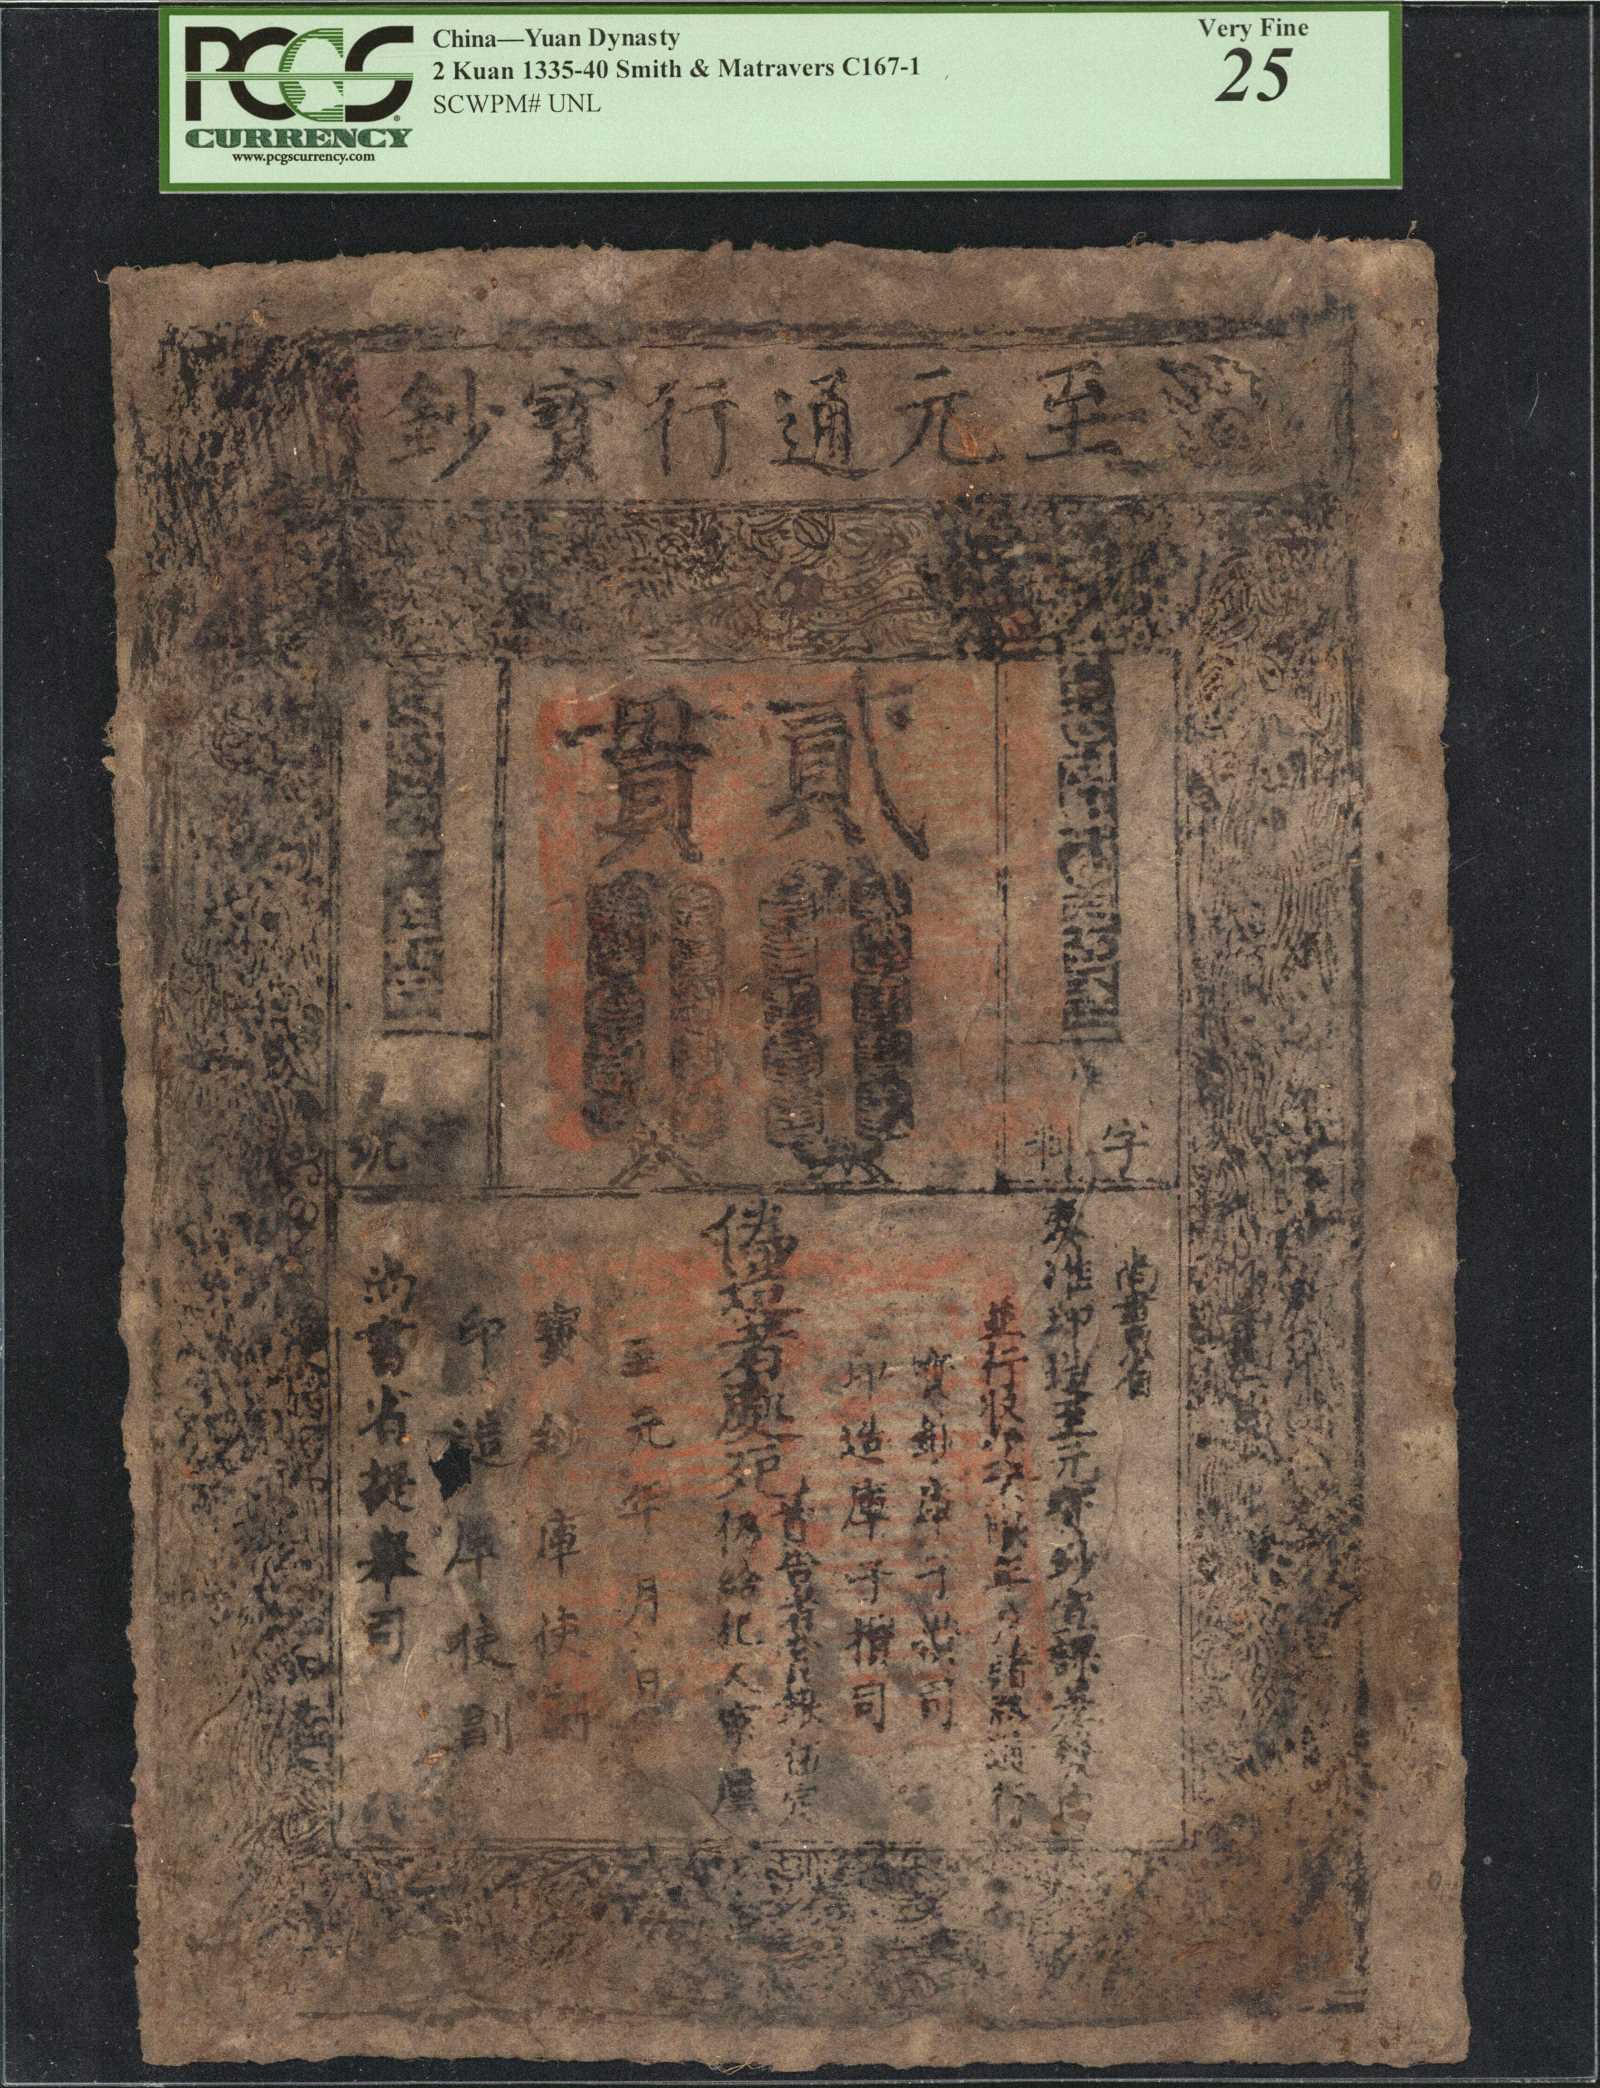 PCGS
CURRENCY
www.pcgscurrency.com
China—Yuan Dynasty
2 Kuan 1335-40 Smith & Matravers C167-1
SCWPM# UNL
Very Fine
25
至元通行寶鈔
貳貫
字
尚書省
奏准印造至元寶鈔宣課差役內
並行收受不限年月諸路通行
寶鈔庫子攢司
印造庫子攢司
偽造者處死
首告者賞銀伍定
仍給犯人家產
至元年月日
寶鈔庫使副
印造庫使副
尚書省提舉司